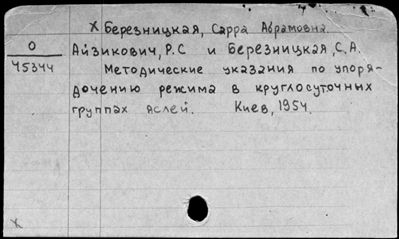 X Березницкая, Сарра Абрамовна.
О
45344
Айзикович, Р.С и Березницкая, С.А.
Методические указания по упоря-
дочению режима в круглосуточных
группах яслей. Киев, 1954.
X